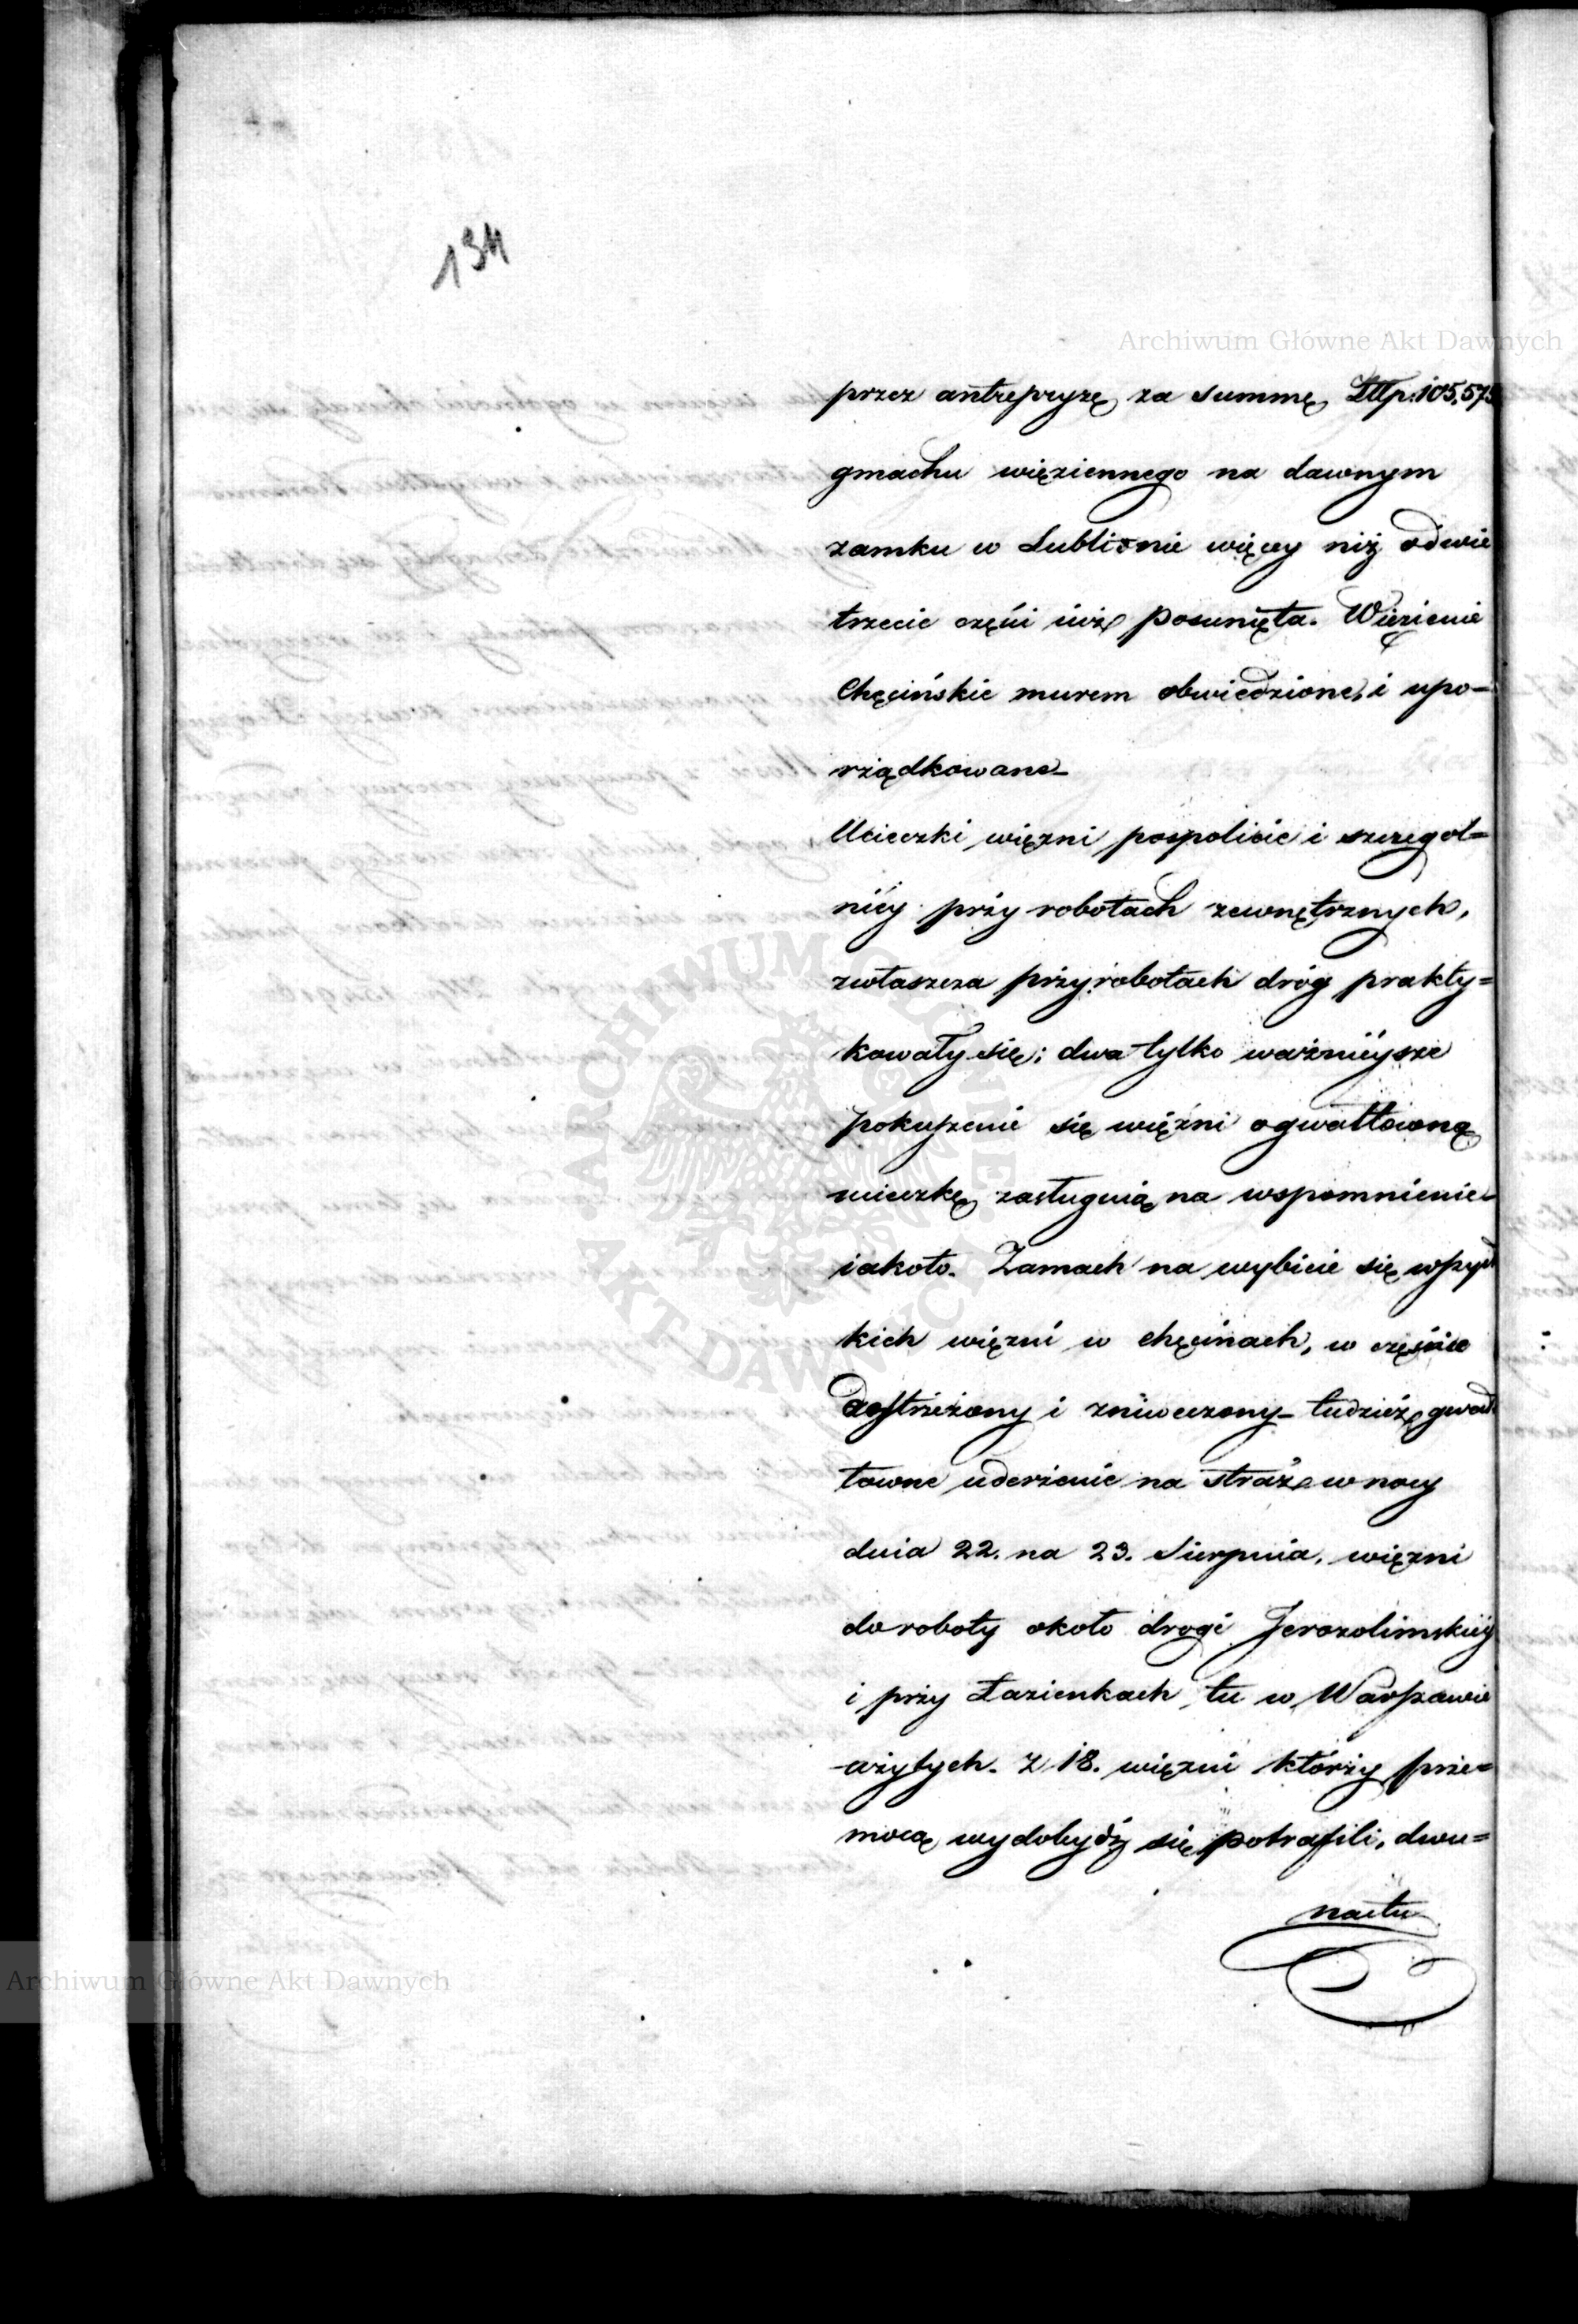 134
Archiwum Główne Akt Dawnych
przez antrepryzę za summę Złtp. 105,575
gmachu więziennego na dawnym
zamku w Lublinie więcy niż o dwie
trzecie części iuż posunięta. Więzienie
Chęcińskie murem obwiedzione, i upo-
rządkowane_
Ucieczki więzni pospolicie i szczegol=
niéy przy robotach zewnętrznych,
zwłaszcza przy robotach dróg prakty=
kowały się; dwa tylko ważniéysze
pokuszenie się więźni o gwałtowną
ucieczkę zasługuią na wspomnienie_
iakoto. Zamach na wybicie się wszyst
kich więzni w Chęcinach, w częście
dostrzeżony i zniweczony_ tudzież gwał
towne uderzenie na straż w nocy
dnia 22. na 23. Sierpnia, więzni
do roboty około drogi Jerozolimskiéy
i przy Łazienkach tu w Warszawie
użytych. Z 18. więzni którzy prze=
mocą wydobydź się potrafili, dwu=
nastu
ARCHIWUM GŁÓWNE AKT DAWNYCH
Archiwum Główne Akt Dawnych